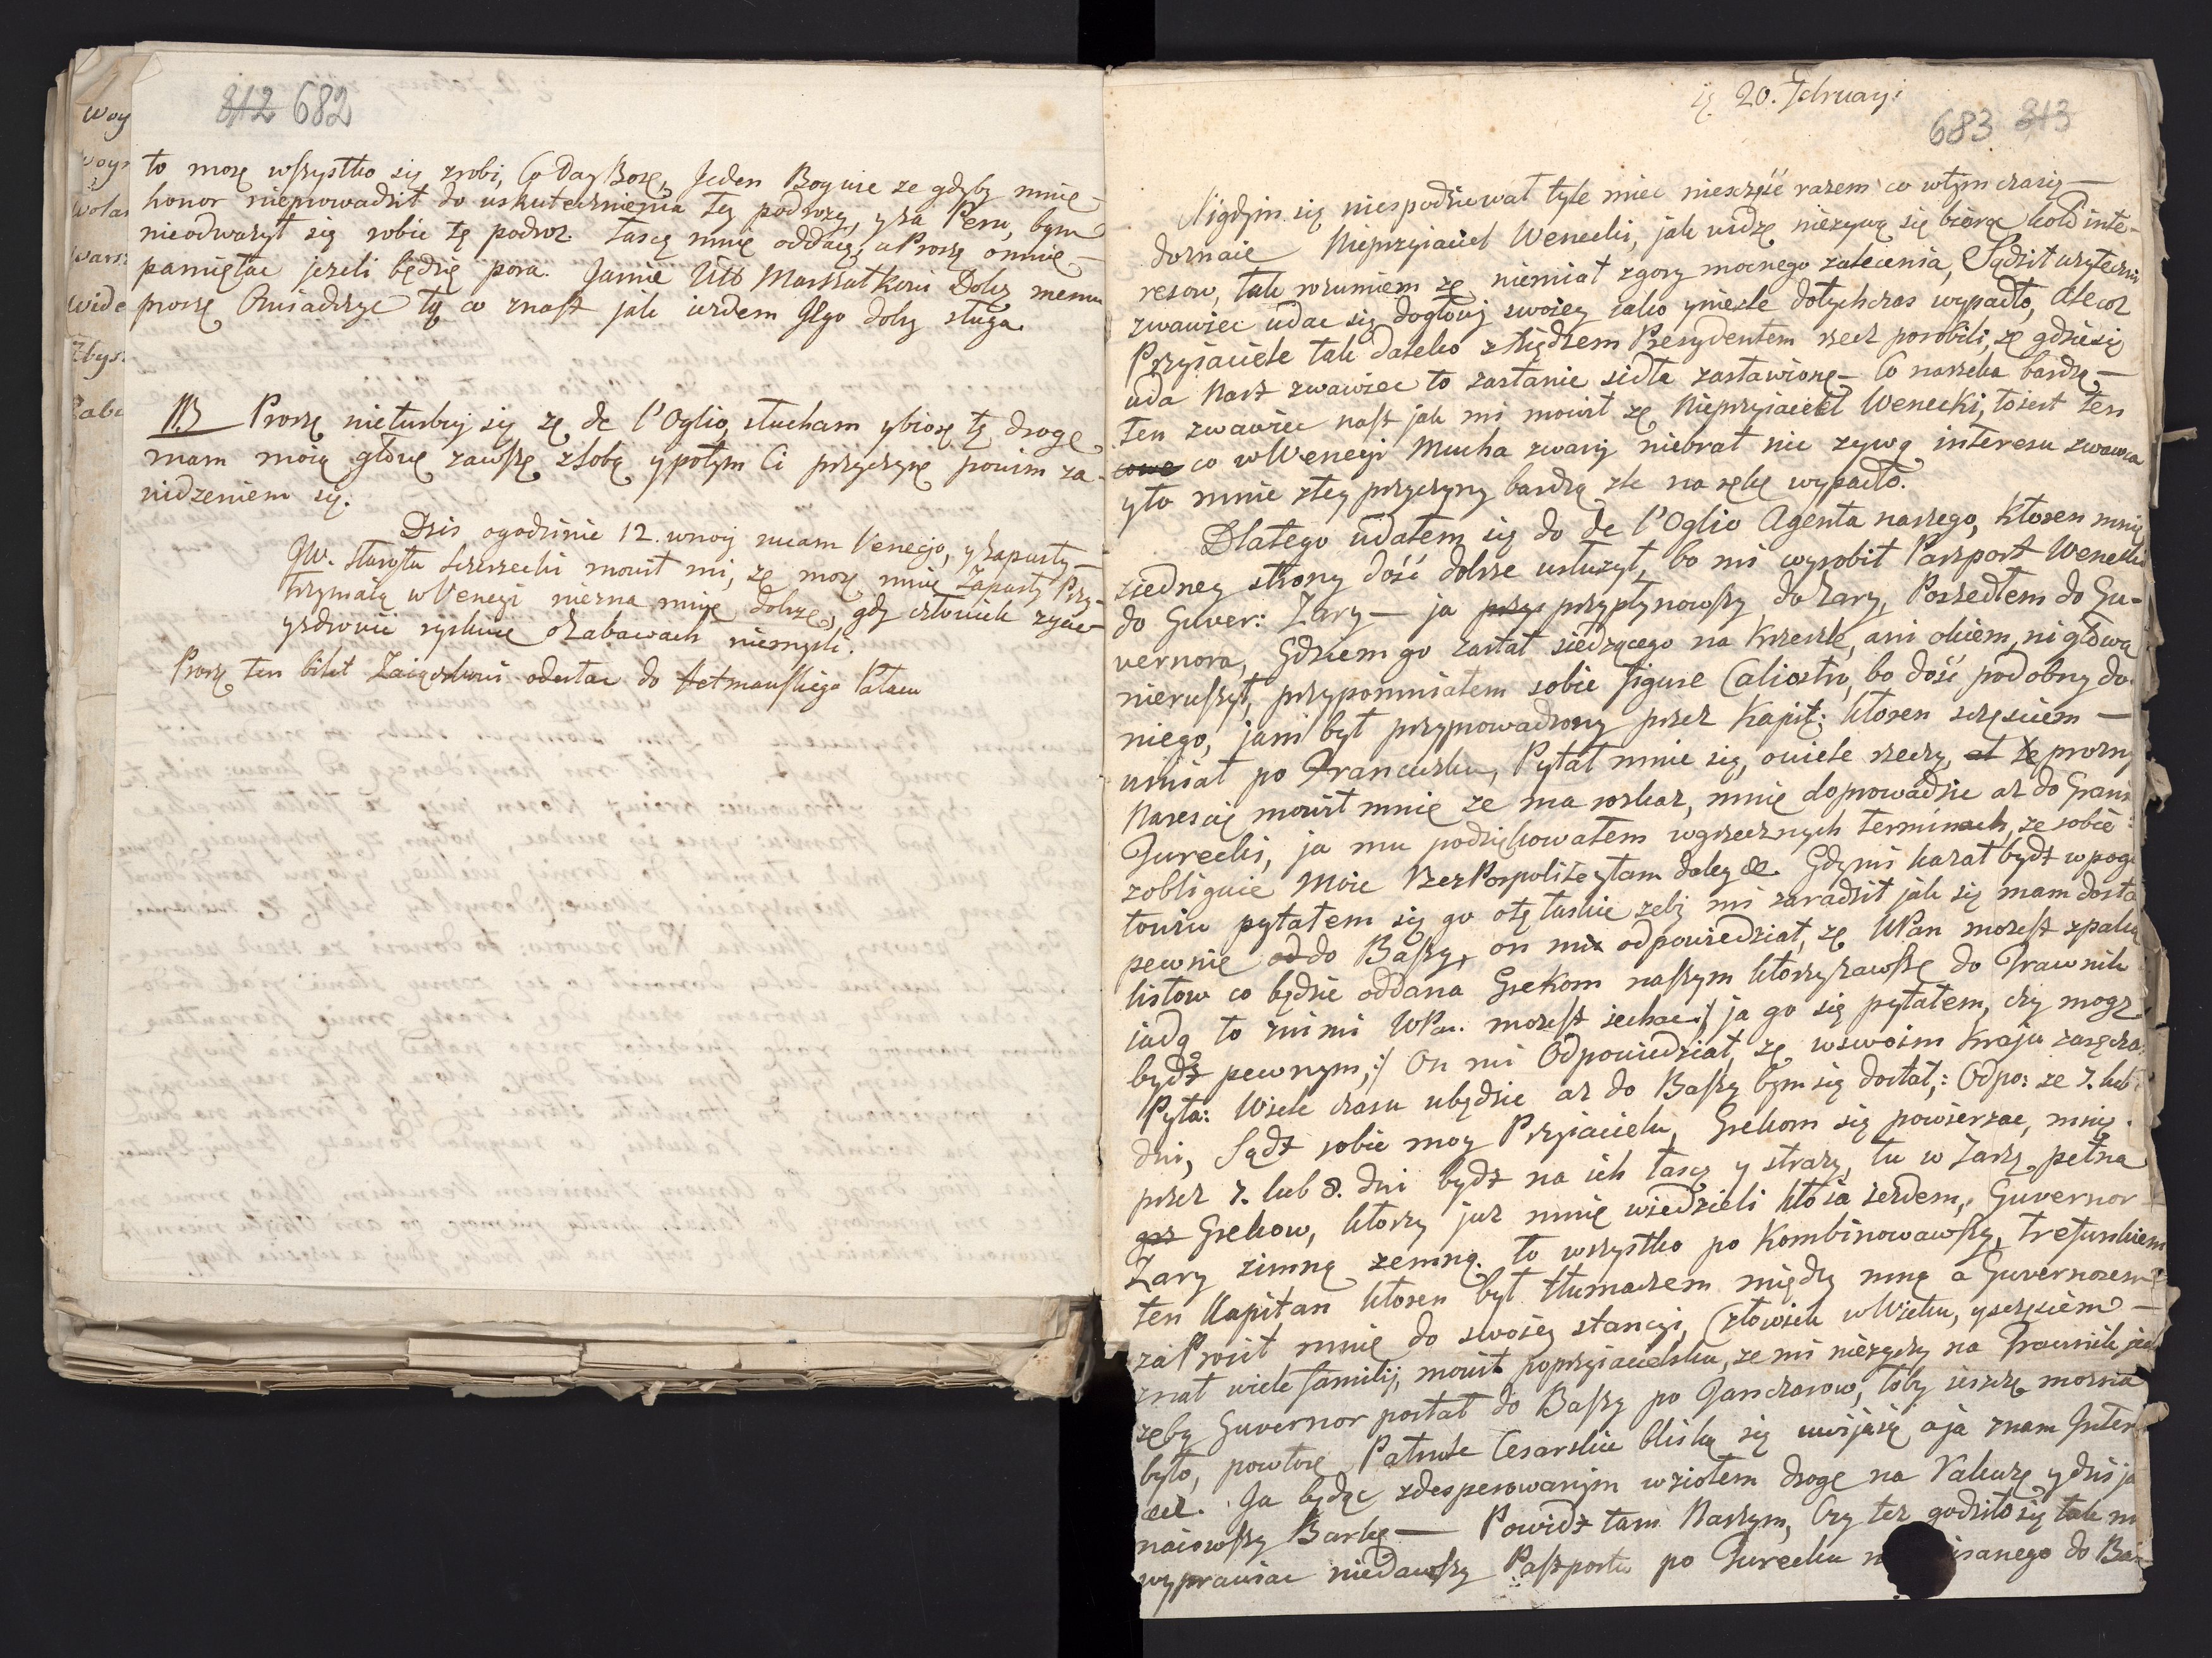 812 682
to morę wſzystko się zrobi, Co Day Bozę, Jeden Bog wie ze gdyby mnie
honor nieprowadził do uskutecznienia tey podrozy, y za Peru, bym
nieodwazył się robic tę podroz. Łascę mnię oddaię, a Proszę omnię
pamiętac jezeli będzię pora. Jamie Utto Marszałkowi Dobrz. memu
proszę Oswiadczyc tę co znasz jak iezdem Jego dobry sługa.
NB Proszę nieturbuj się zę de l'Oglio, słucham ybiorę tę drogę
mam moią głowę zawſzę zsobą ypotym Ci przyczynę powim za
widzeniem się.
Dzis ogodzinie 12. wnocy mijam Venecją, y Zapusty
JW. Starosta mowił mi, zę morę mnie Zapusty Przy-
trzymaią wVenecji niezna mnię dobrzę, gdy człowiek zycie
yzdrowie ryskuie oZabawach niemysli.
Proszę ten bilet Zaiączkowi odesłac do Hetmanskiego Pałacu
Woy
Woys
Wolas
Wars
Wide
Zbys
Zabi
20. February:
683 813
Nigdym się niespodziewał tyle miec niesczęść razem co wtym czasię
doznaię Nieprzyiaciel Wenecki, jak widzę niezywę się bierze kołd inte-
resow, tak rozumiem zę niemiał zgory mocnego zalecenia, Sądził uzyteczni
zwawiec udac się dogłowy swoiey iako ynieźle dotychczas wypadło, Alecoz
Przyiaciele tak daleko zXiędzem Prezydentem rzecz porobili, zę gdziesię
uda Nasz zwawiec to zastanie sidła zastawionę – Co narzeka bardzę –
ten zwawiec nasz jak mi mowił zę Nieprzyiaciel Wenecki, toiest ten
co wVenecji Mucha zwany niebrał nic zywę interesu zwawca
yto mnie ztey przyczyny bardzę zle na rękę wypadło.
Dlatego udałem się do de l'Oglio Agenta naszego, ktoren mnię
ziedney strony dość dobrze usłuzył, bo mi wyrobił Paszport Wenecki
do Guver: Zary – ja przypłynowſzy do Zary, Poszedłem do Gu-
vernora, Gdziem go zastał siedzącego na Krzesle, ani okiem, ni głową
nieruſzył, przypomniałem sobie figure Caliostro, bo dość podobny do
niego, jam był przyprowadzony przez Kapit: ktoren sczęsciem –
umiał po Francuzku, Pytał mnie się, owiele rzeczy, prozny
Naresció mowił mnię ze ma rozkaz, mnię doprowadzic az do Grani
Turecki, ja mu podziękowałem wgrzecznych terminach, ze sobie
zobliguie Moie RzezPospolite ytam daley &. Gdymi kazał bydz wpogo
towiu pytałem się go otę łaskie zeby mi zaradził jak się mam dosta
pewnię do Baſzy, on mi odpowiedział, zę WPan mozesz zpaką
listow co będzie oddana Grekom naſzym ktorzy zawſzę do Trawnik
iadą to znimi WPan. mozesz iechac :/ ja go się pytałem, czy mogę
bydź pewnym, :/ On mi Odpowiedział, zę wswoim Kraju zaręcza
Pyta: Wiele czasu ubędzie az do Baſzy bym się dostał,: Odpo: ze 7. lub
dni, Sądz sobie moy Przyiacielu, Grekom się powierzac, mnię
przez 7. lub 8. dni bydz na ich łascę y strazy, tu w Zarzę pełna
Grekow, ktorzy juz mnię wiedzieli kto ia iezdem, Guvernor
Zary zimną zemną. to wszystko po Kombinowawſzy, trefunkiem
ten Kapitan ktoren był tłumaczem między mną a Guvernorem
zaProsił mnię do swoiey stancji, Człowiek wWieku, ysczęsciem –
znał wiele familij, mowił poprzyiacielsku, ze mi niezyczy na Trawnik jec
zęby Guvernor posłał do Baſzy po Janczarow, toby ieszczę mozna
było, powtorę Patrole Cesarskie bliską się uwijaią aja znam Inter
Ja będąc zdesperowanym wziołem drogę na Rakuzę ydzis ja
naiowſzy Barkę – Powidz tam Naszym, Czy tez godziło się tak m
wyprawiac niedawſzy Paſzportu po Turecku do Ba-